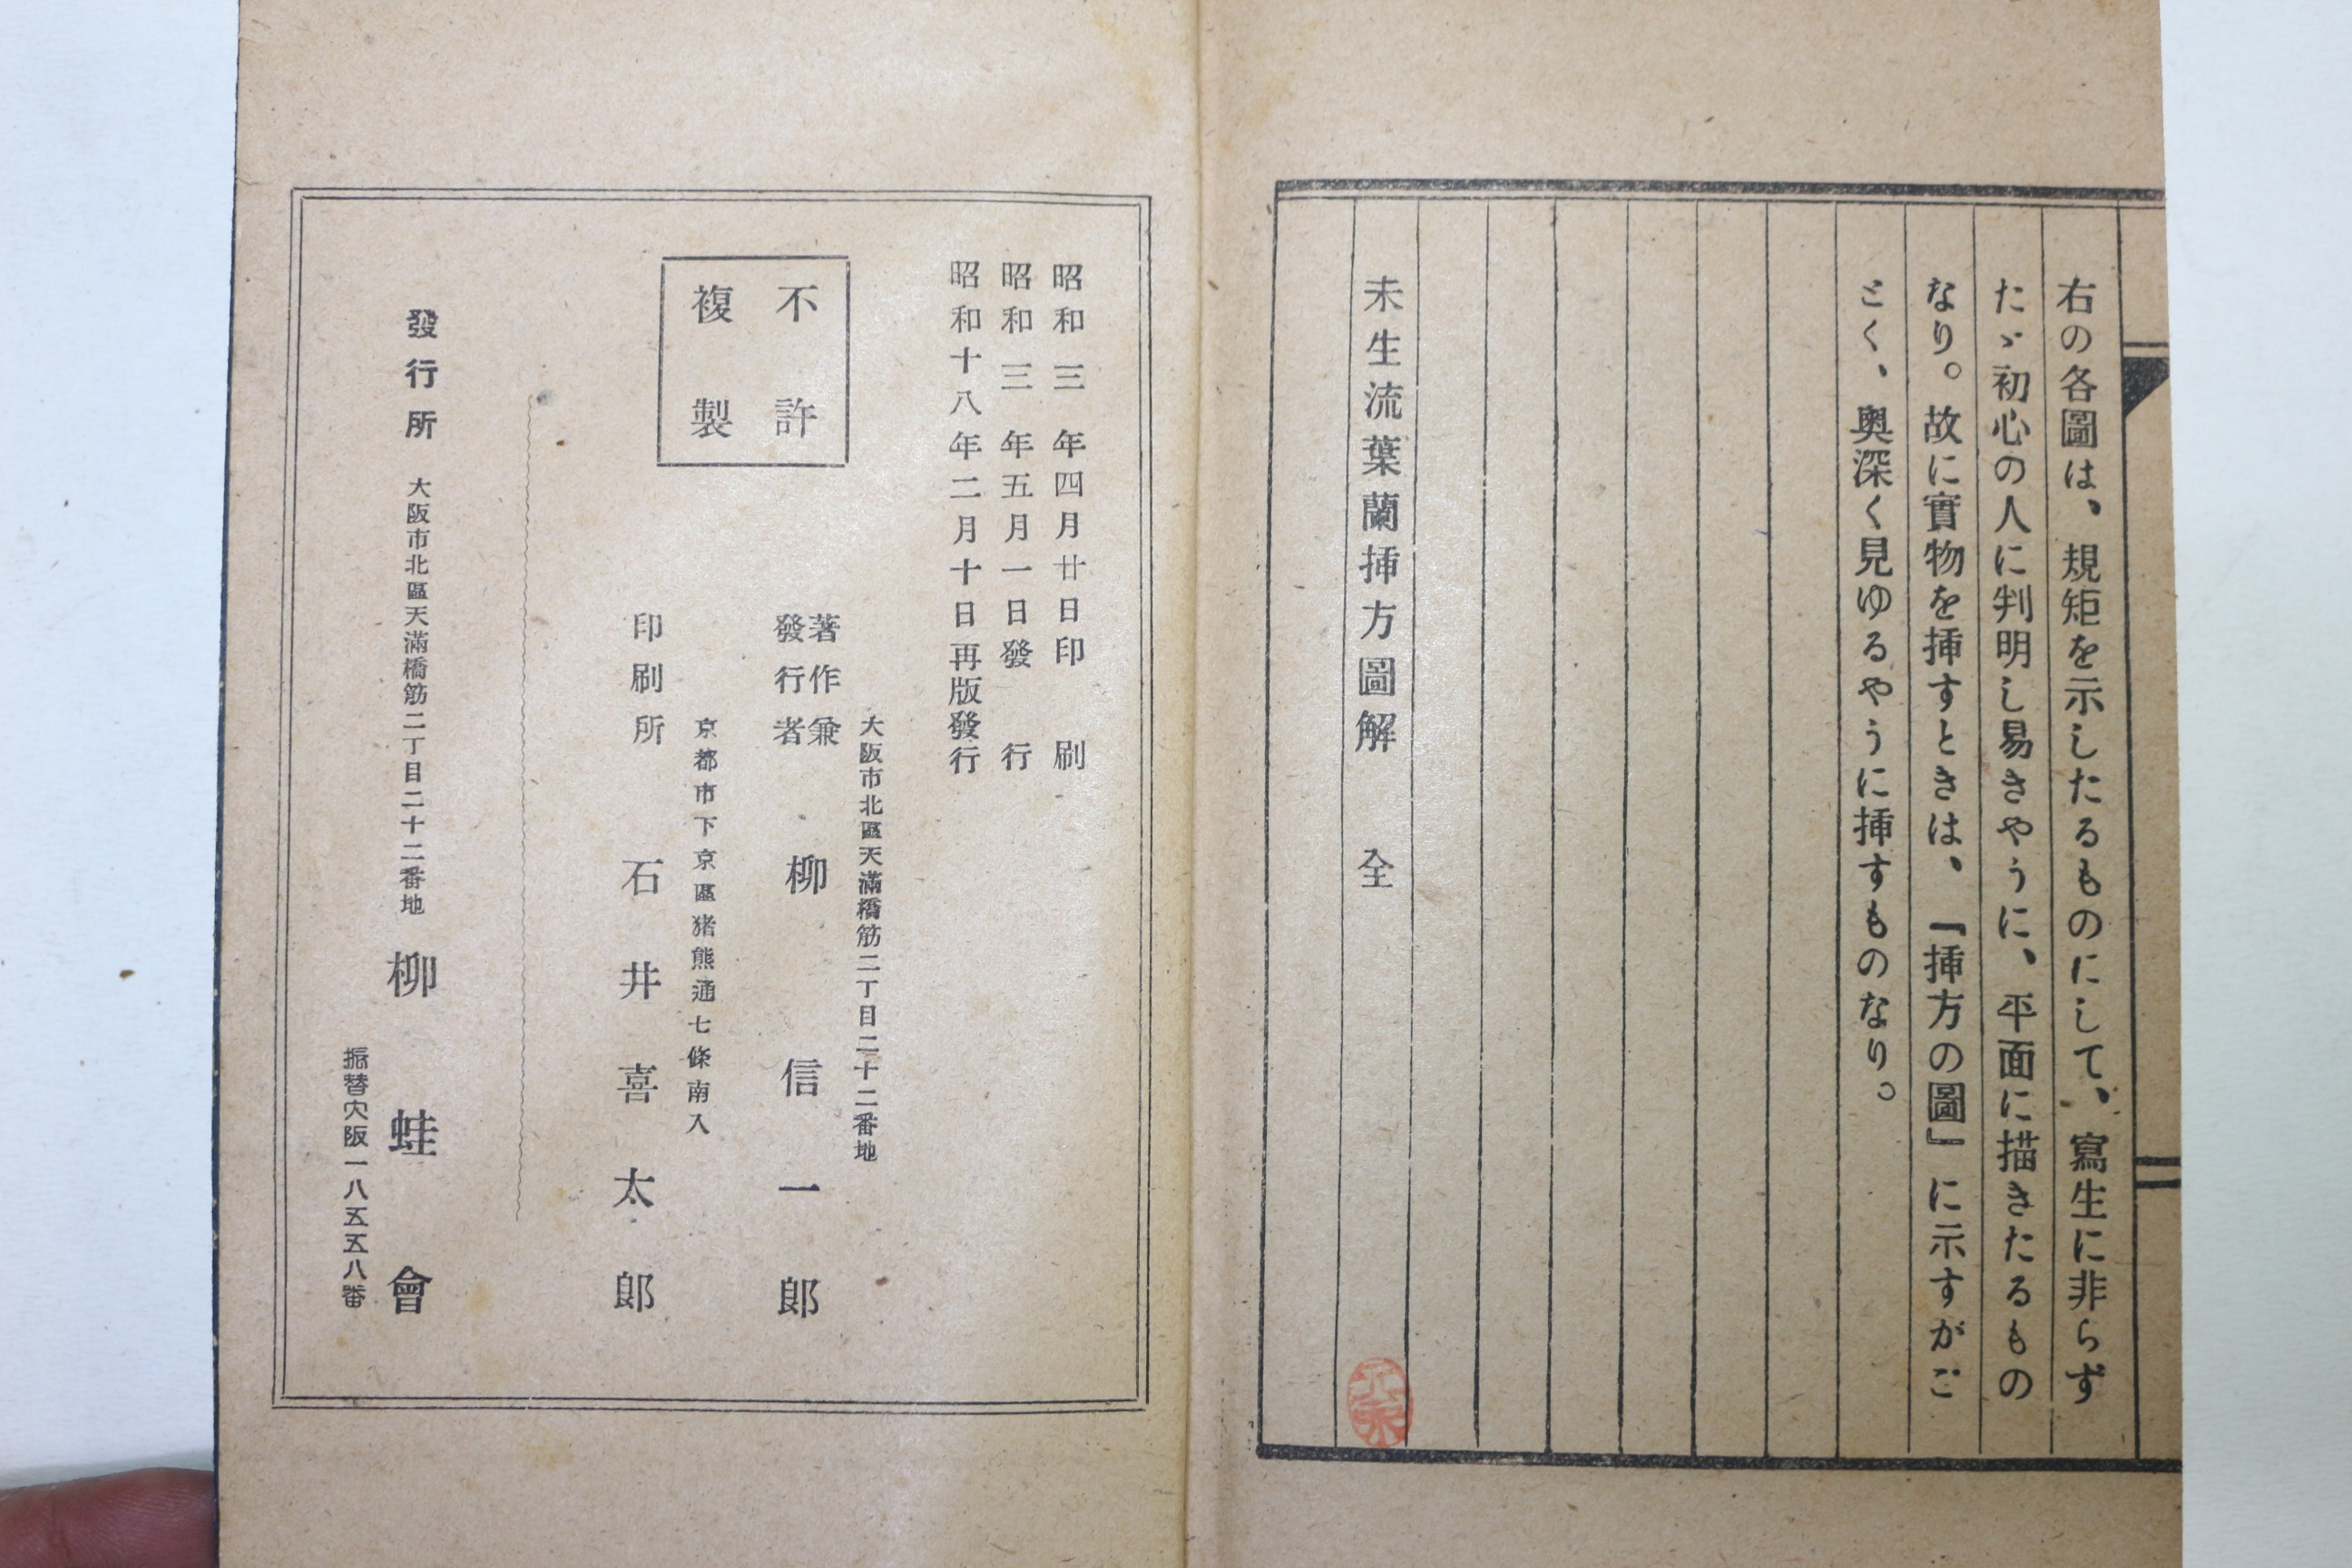 右の各圖は、規矩を示したるものにして、寫生に非らず
たゞ初心の人に判明し易きやうに、平面に描きたるもの
なり。故に實物を挿すときは、『挿方の圖』に示すがご
とく、奥深く見ゆるやうに挿すものなり。
未生流葉蘭挿方圖解　全
昭和三年四月廿日印刷
昭和三年五月一日發行
昭和十八年二月十日再版發行
不許
複製
大阪市北區天滿橋筋二丁目二十二番地
著作兼
發行者　柳信一郎
京都市下京區猪熊通七條南入
印刷所　石井喜太郎
發行所　大阪市北區天滿橋筋二丁目二十二番地　柳蛙會
振替大阪一八五五八番